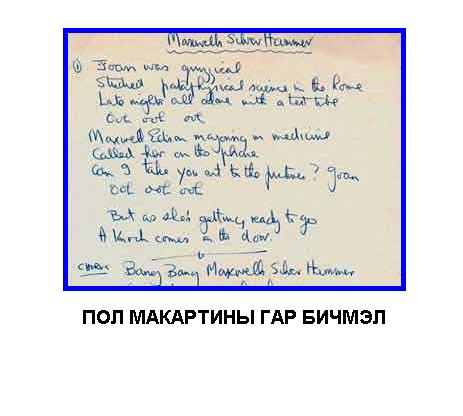 Maxwells Silver Hammer
① Joan was quizzical
Studied pataphysical science in the home
Late nights all alone with a test tube
Ooh ooh ooh
Maxwell Edison majoring in medicine
Called her on the phone
Can I take you out to the pictures? Joan
ooh ooh ooh
But as she's getting ready to go
A knock comes on the door.
CHORUS Bang Bang Maxwells Silver Hammer
ПОЛ МАКАРТИНЫ ГАР БИЧМЭЛ